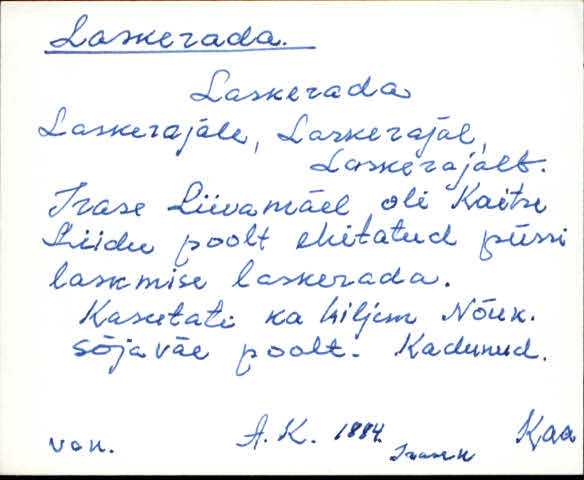 Laskerada.
Laskerada
Laskerajäle, Laskerajäl,
Laskerajält.
Irase Liivamäel oli Kaitse
Liidu poolt ehitatud püssi
laskmise laskerada.
Kasutati ka hiljem Nõuk.
sõjaväe poolt. Kadunud.
A. K. 1884. Kaa
van. Irase k